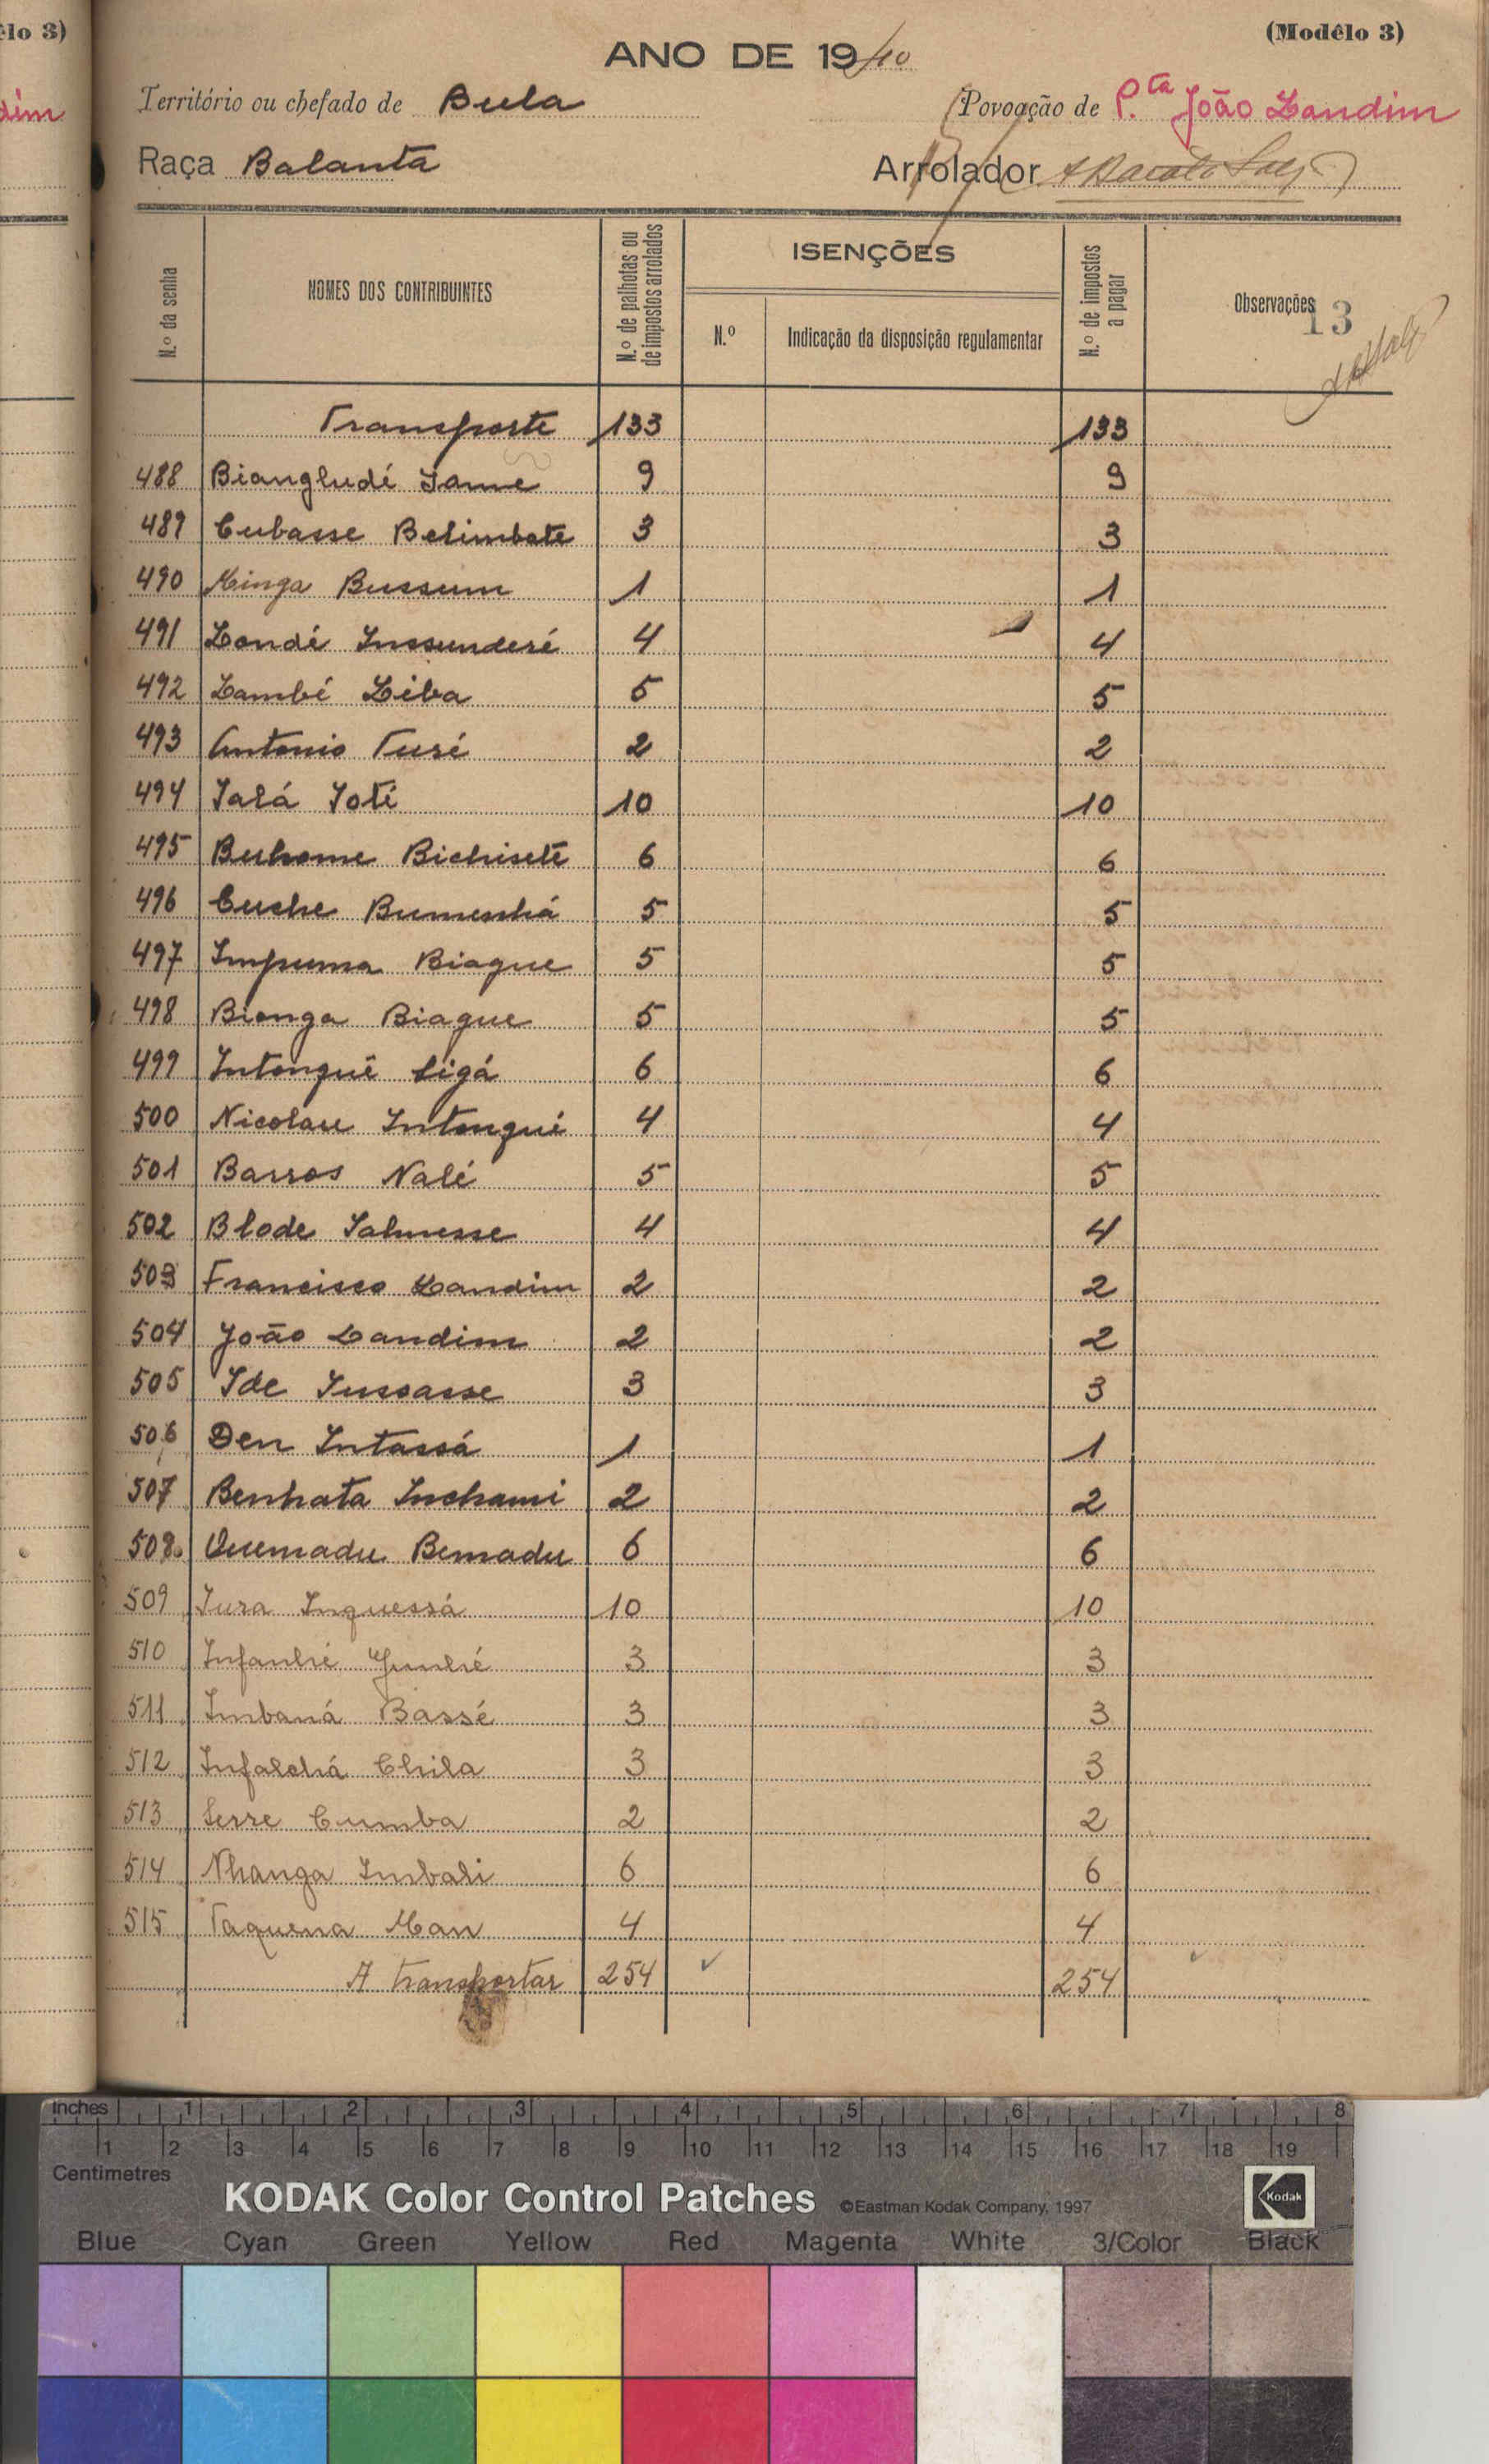 êlo 3)
(Modêlo 3)
ANO DE 1940
dim
Território ou chefado de Bula
Povoação de P.ta João Landim
Raça Balanta
Arrolador
N.º da senha
NOMES DOS CONTRIBUINTES
N.º de palhotas ou de impostos arrolados
ISENÇÕES
N.º
Indicação da disposição regulamentar
N.º de impostos a pagar
Observações
13
Transporte 133 133
488 Biangludé Iame 9 9
489 Cubasse Belimbate 3 3
490 Minga Bussum 1 1
491 Londé Inssunderé 4 4
492 Lambé Liba 5 5
493 Antonio Turé 2 2
494 Ialá Ioté 10 10
495 Buhome Bichiseté 6 6
496 Cuche Bumenhá 5 5
497 Impuma Biague 5 5
498 Bionga Biague 5 5
499 Intongué Sigá 6 6
500 Nicolau Intongué 4 4
501 Barros Nalé 5 5
502 Blode Salmesse 4 4
503 Francisco Landim 2 2
504 João Landim 2 2
505 Ide Inssasse 3 3
506 Den Intassá 1 1
507 Benhata Inchami 2 2
508 Quemadu Bemadu 6 6
509 Iura Inquessá 10 10
510 Infanhé 3 3
511 Imbaná Bassé 3 3
512 Infalchá Chila 3 3
513 Serre Cumba 2 2
514 Nhanga Imbali 6 6
515 Taquena Man 4 4
A transportar 254 254
Inches 1 2 3 4 5 6 7 8
1 2 3 4 5 6 7 8 9 10 11 12 13 14 15 16 17 18 19
Centimetres
KODAK Color Control Patches ©Eastman Kodak Company, 1997 Kodak
Blue Cyan Green Yellow Red Magenta White 3/Color Black